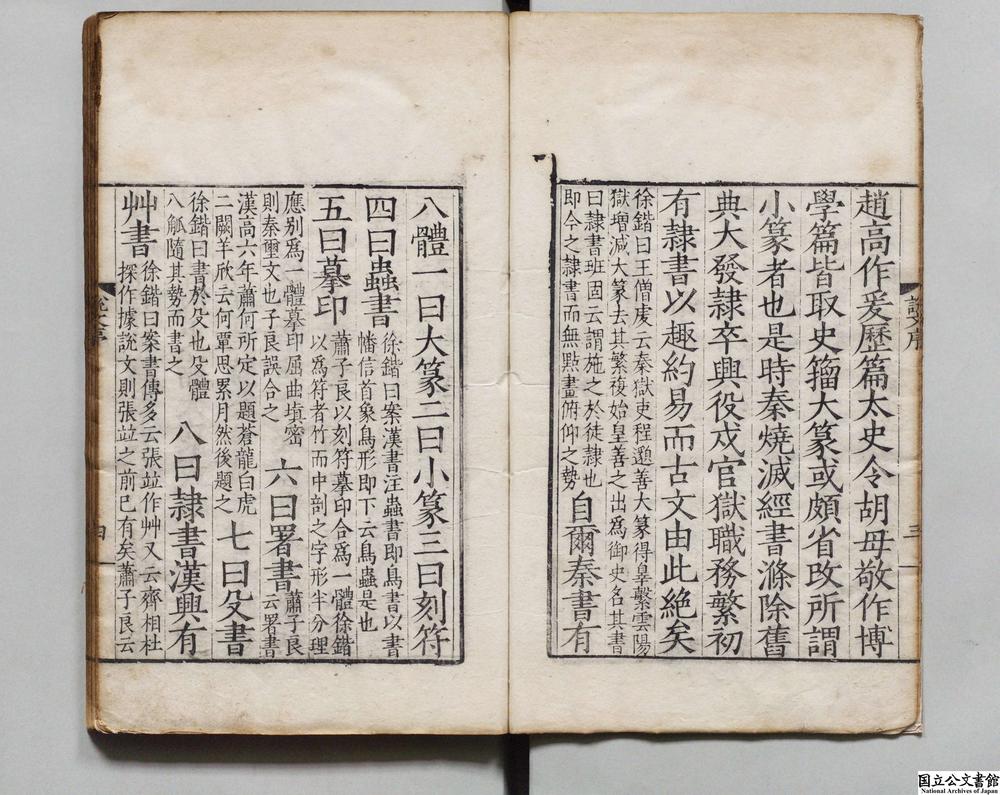 趙高作爰歷篇太史令胡母敬作博
學篇皆取史籀大篆或頗省改所謂
小篆者也是時秦燒滅經書滌除舊
典大發隸卒興役戍官獄職務繁初
有隸書以趣約易而古文由此絕矣
徐鍇曰王僧虔云秦獄吏程邈善大篆得辠繫雲陽
獄增減大篆去其繁複始皇善之出爲御史名其書
曰隸書班固云謂施之於徒隸也
即今之隸書而無點畫俯仰之勢
自爾秦書有
八體一曰大篆二曰小篆三曰刻符
四曰蟲書
徐鍇曰案漢書注蟲書即鳥書以書
幡信首象鳥形即下云鳥蟲是也
五曰摹印
蕭子良以刻符摹印合爲一體徐鍇
以爲符者竹而中剖之字形半分理
應别爲一體摹印屈曲塡密
則秦璽文也子良誤合之
六曰署書
蕭子良
云署書
漢高六年蕭何所定以題蒼龍白虎
二闕羊欣云何覃思累月然後題之
七曰殳書
徐鍇曰書於殳也殳體
八觚隨其勢而書之
八曰隸書漢興有
艸書
徐鍇曰案書傳多云張竝作艸又云齊相杜
探作據說文則張竝之前已有矣蕭子良云
国立公文書館
National Archives of Japan